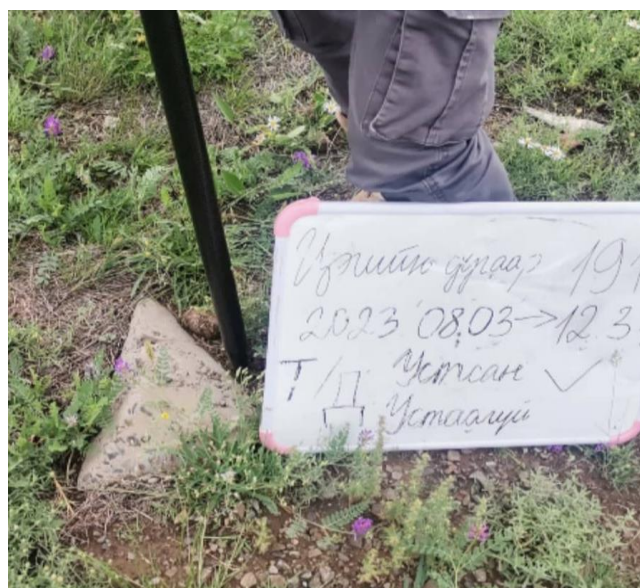 Цэгийн дугаар 191
2023 08.03->12.3
Т/Д Устсан ✓
Устаагүй